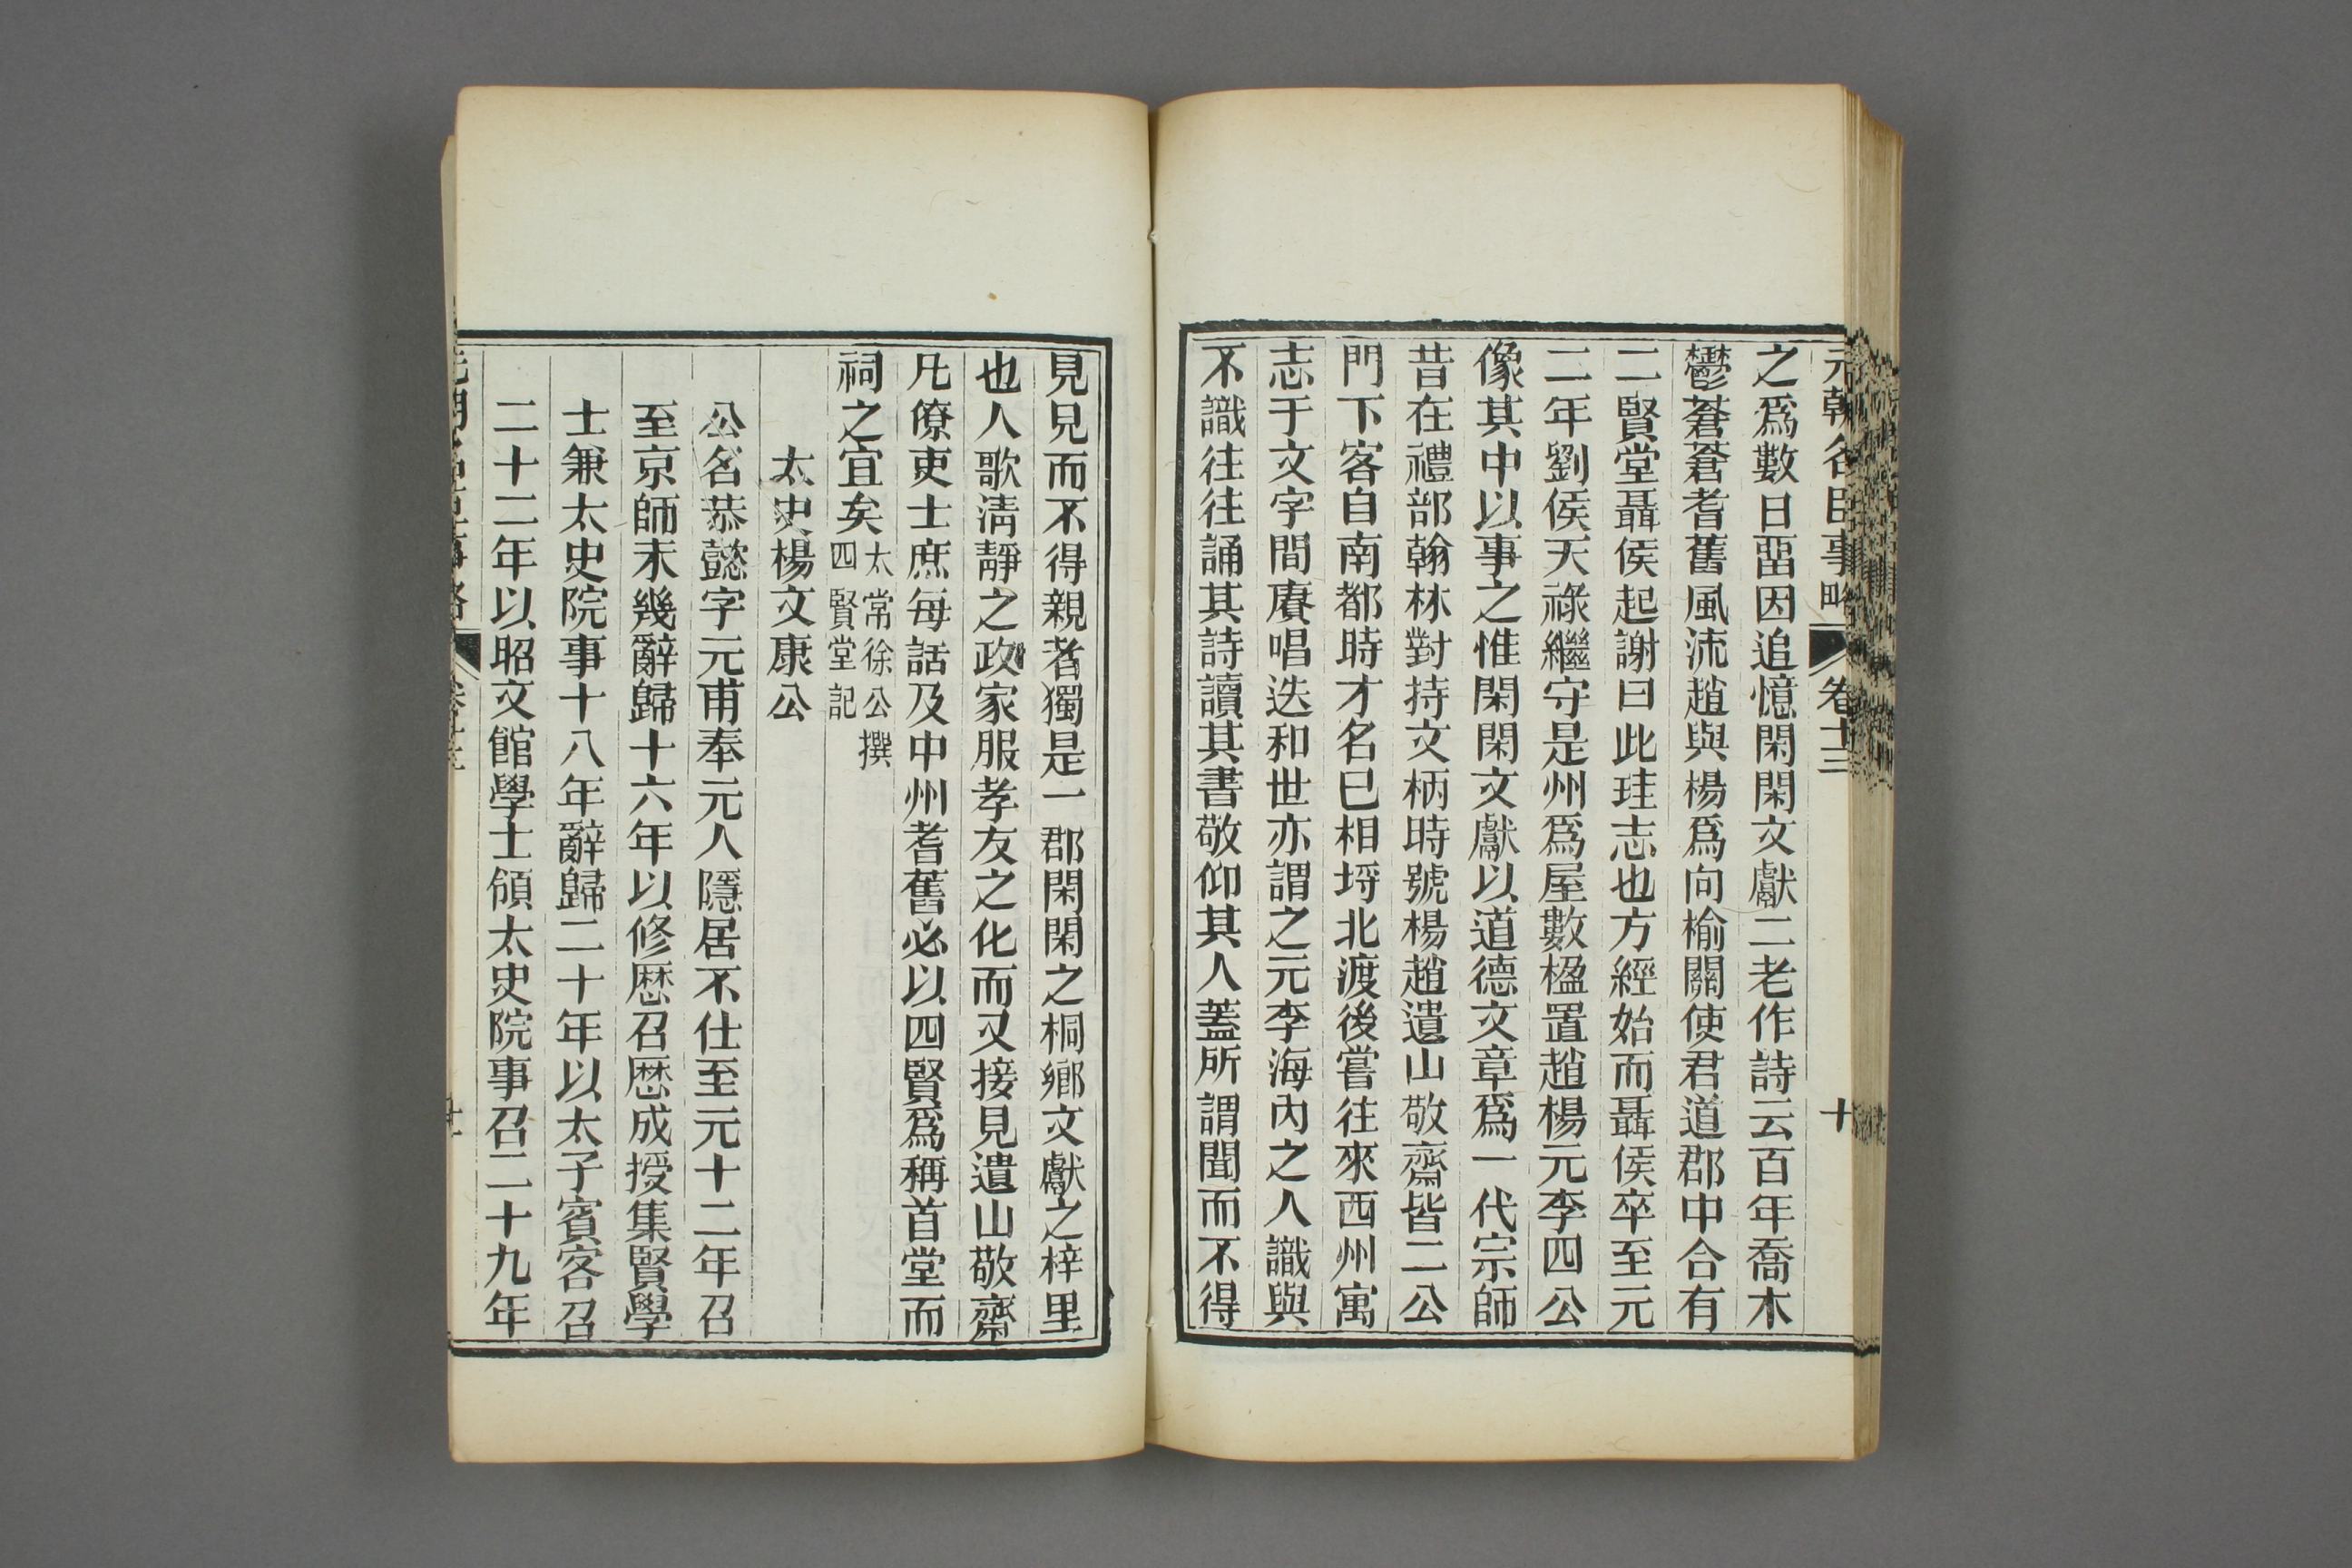 元朝名臣事略 卷十三 十
之爲數日畱因追憶閑閑文獻二老作詩云百年喬木
鬱蒼蒼耆舊風流趙與楊爲向榆關使君道郡中合有
二賢堂聶侯起謝曰此珪志也方經始而聶侯卒至元
二年劉侯天祿繼守是州爲屋數楹置趙楊元李四公
像其中以事之惟閑閑文獻以道德文章爲一代宗師
昔在禮部翰林對持文柄時號楊趙遺山敬齋皆二公
門下客自南都時才名已相埒北渡後嘗往來西州寓
志于文字間賡唱迭和世亦謂之元李海內之人識與
不識往往誦其詩讀其書敬仰其人蓋所謂聞而不得
見見而不得親者獨是一郡閑閑之桐鄉文獻之梓里
也人歌清靜之政家服孝友之化而又接見遺山敬齋
凡僚吏士庶每話及中州耆舊必以四賢爲稱首堂而
祠之宜矣太常徐公撰四賢堂記
太史楊文康公
公名恭懿字元甫奉元人隱居不仕至元十二年召
至京師未幾辭歸十六年以修歷召歷成授集賢學
士兼太史院事十八年辭歸二十年以太子賓客召
二十二年以昭文館學士領太史院事召二十九年